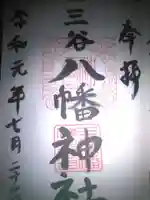 奉拝
三谷八幡神社
令和元年七月二十